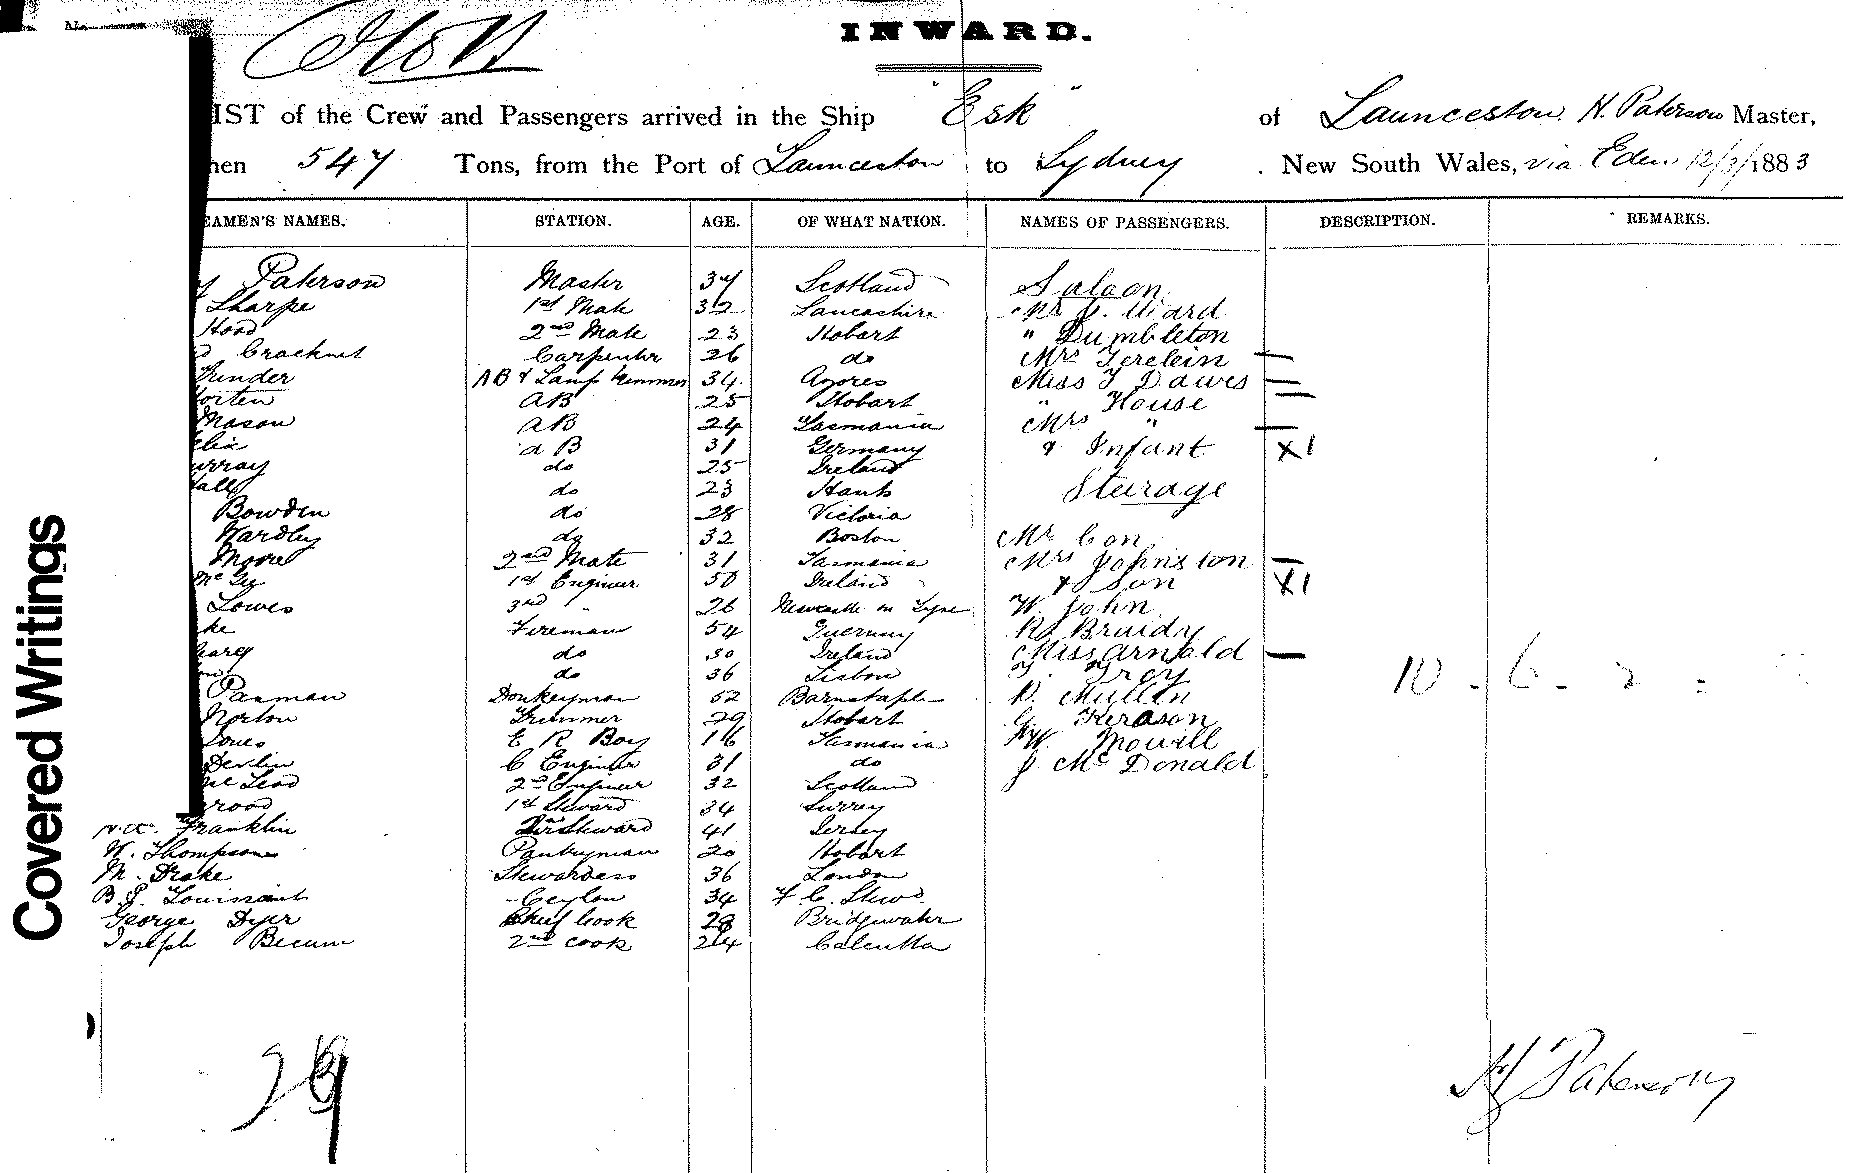 INWARD.
IST of the Crew and Passengers arrived in the Ship "Esk" of Launceston. H. Paterson Master,
hen 547 Tons, from the Port of Launceston to Sydney. New South Wales, via Eden 12/3/1883
EAMEN'S NAMES. STATION. AGE. OF WHAT NATION. NAMES OF PASSENGERS. DESCRIPTION. REMARKS.
Paterson Master 37 Scotland Saloon
Sharpe 1st Mate 32 Lancashire Mr J. Ward
Hood 2nd Mate 23 Hobart " Dumbleton
Cracknet Carpenter 26 do Mrs
AB & Lamp trimmer 34 Azores Miss Dawes
AB 25 Hobart " House
Mason AB 24 Tasmania Mrs "
AB 31 Germany & Infant X1
urray do 25 Ireland
do 23 Hants Steerage
Bowden do 28 Victoria
Hardley do 32 Boston Mr Con
Moore 2nd Mate 31 Tasmania Mrs Johnston
1st Engineer 50 Ireland & Son X1
Lowes 3rd " 26 Newcastle on Tyne W. John
Fireman 54 Guernsey Braidy
do 30 Ireland Miss Arnold
do 36 Lisbon T. Grey
Paxman Donkeyman 52 Barnstaple D. Mullin
Norton Trimmer 29 Hobart G. Kerason
Jones E R Boy 16 Tasmania W. Mowill
Devlin C Engineer 31 do J. McDonald
2nd Engineer 32 Scotland
1st Steward 34 Surrey
Franklin Steward 41 Jersey
W. Thompson Pantryman 20 Hobart
M. Drake Stewardess 36 London
B. J. Ceylon 34 F. C. Stewd.
George Dyer Chief Cook 28 Bridgwater
Joseph 2nd Cook 24 Calcutta
H Paterson
Covered Writings